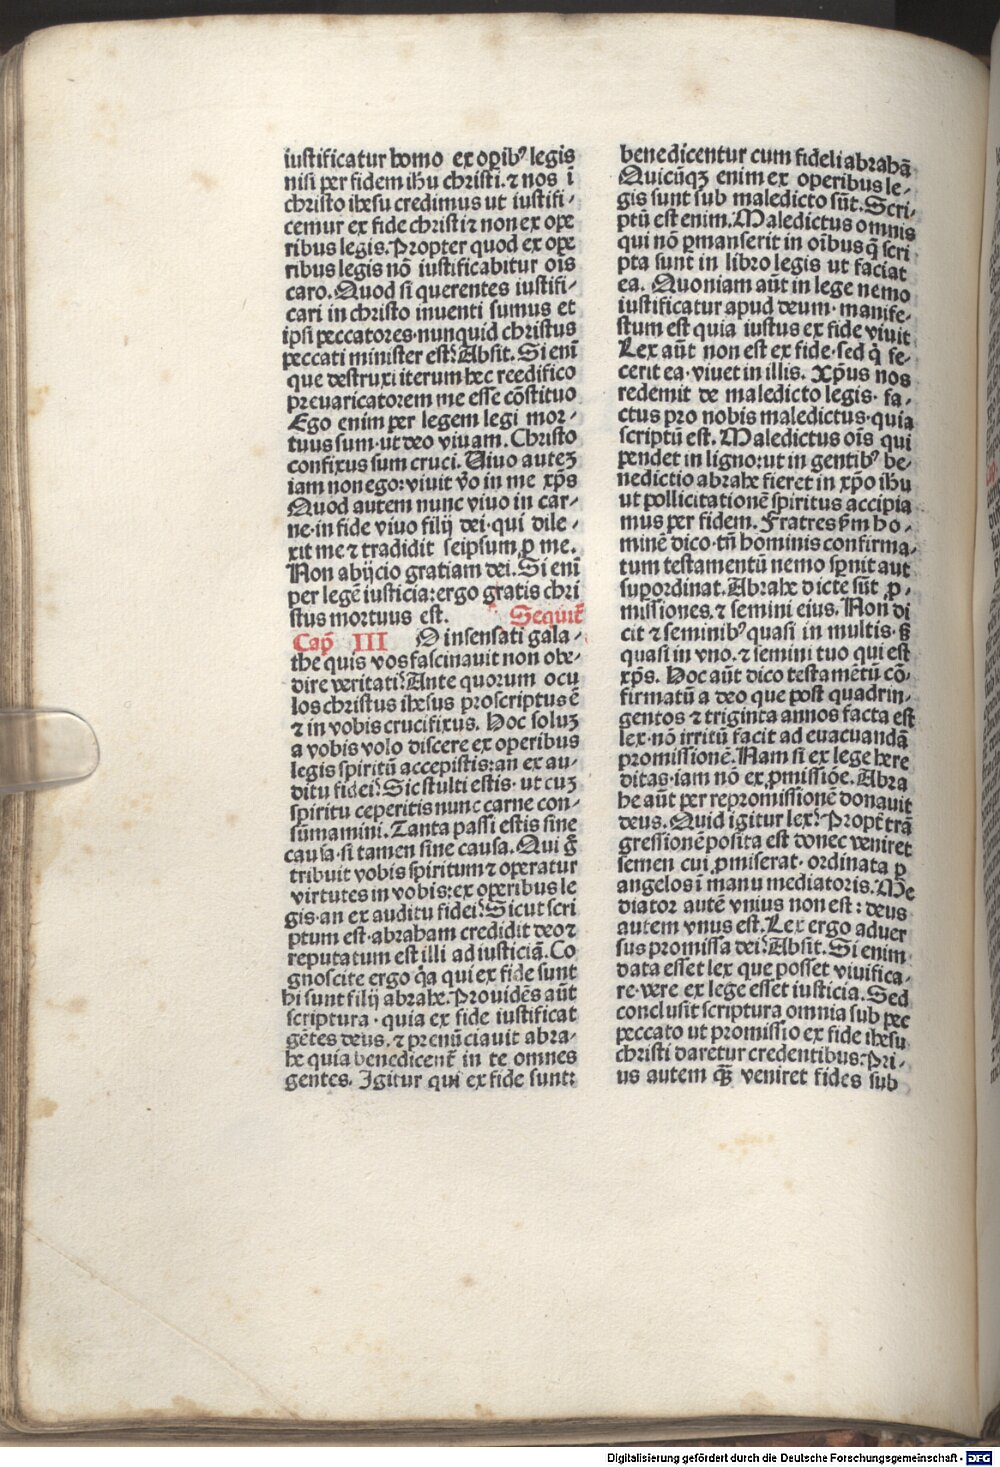 iustificatur homo ex oꝑibꝰ legis
nisi per fidem ihu christi. ⁊ nos ī
christo ihesu credimus ut iustifi-
cemur ex fide christi ⁊ non ex ope
ribus legis. Propter quod ex ope
ribus legis nō iustificabitur oīs
caro. Quod si querentes iustifi-
cari in christo inuenti sumus et
ipsi peccatores· nunquid christus
peccati minister est? Absit. Si enī
que destruxi iterum hec reedifico
preuaricatorem me esse cōstituo
Ego enim per legem legi mor-
tuus sum· ut deo viuam. Christo
confixus sum cruci. Viuo auteꝫ
iam non ego: viuit v̄o in me xp̄s
Quod autem nunc viuo in car-
ne· in fide viuo filij dei· qui dile-
xit me ⁊ tradidit seipsum ꝓ me.
Non abijcio gratiam dei. Si enī
per legē iusticia: ergo gratis chri
stus mortuus est. Sequit̄
Cap̄ III O insensati gala-
the quis vos fascinauit non obe-
dire veritati? Ante quorum ocu
los christus ihesus proscriptus ē
⁊ in vobis crucifixus. Hoc soluꝫ
a vobis volo discere ex operibus
legis spiritū accepistis: an ex au-
ditu fidei? Sic stulti estis· ut cuꝫ
spiritu ceperitis nunc carne con-
sūmamini. Tanta passi estis sine
causa· si tamen sine causa. Qui ḡ
tribuit vobis spiritum ⁊ operatur
virtutes in vobis: ex operibus le
gis· an ex auditu fidei? Sicut scri
ptum est· abraham credidit deo ⁊
reputatum est illi ad iusticiā. Co
gnoscite ergo q̄a qui ex fide sunt
hi sunt filij abrahe. Prouidēs aūt
scriptura· quia ex fide iustificat
gētes deus. ⁊ prenūciauit abra-
he quia benedicent̄ in te omnes
gentes. Igitur qui ex fide sunt:
benedicentur cum fideli abrahā
Quicūqꝫ enim ex operibus le-
gis sunt sub maledicto sūt. Scri-
ptū est enim. Maledictus omnis
qui nō ꝑmanserit in oībus q̄ scri
pta sunt in libro legis ut faciat
ea. Quoniam aūt in lege nemo
iustificatur apud deum· manife-
stum est quia iustus ex fide viuit
Lex aūt non est ex fide· sed q̇ fe-
cerit ea· viuet in illis. Xp̄us nos
redemit de maledicto legis· fa-
ctus pro nobis maledictus· quia
scriptū est. Maledictus oīs qui
pendet in ligno: ut in gentibꝰ be-
nedictio abrahe fieret in xp̄o ihu
ut pollicitationē spiritus accipia
mus per fidem. Fratres ẜm ho-
minē dico· tn̄ hominis confirma-
tum testamentū nemo sꝑnit aut
supordinat. Abrahe dicte sūt ꝓ-
missiones. ⁊ semini eius. Non di
cit ⁊ seminibꝰ quasi in multis· ẜ
quasi in vno. ⁊ semini tuo qui est
xp̄s. Hoc aūt dico testamētū cō-
firmatū a deo que post quadrin-
gentos ⁊ triginta annos facta est
lex· nō irritū facit ad euacuandā
promissionē. Nam si ex lege here
ditas· iam nō ex ꝓmissiōe. Abra
he aūt per repromissionē donauit
deus. Quid igitur lex? Propt̄ trā
gressionē posita est donec veniret
semen cui ꝓmiserat· ordinata ꝑ
angelos ī manu mediatoris. Me
diator autē vnius non est: deus
autem vnus est. Lex ergo aduer
sus promissa dei? Absit. Si enim
data esset lex que posset viuifica-
re· vere ex lege esset iusticia. Sed
conclusit scriptura omnia sub pec
peccato ut promissio ex fide ihesu
christi daretur credentibus. Pri-
us autem qꝫ̄ veniret fides sub
Digitalisierung gefördert durch die Deutsche Forschungsgemeinschaft - DFG